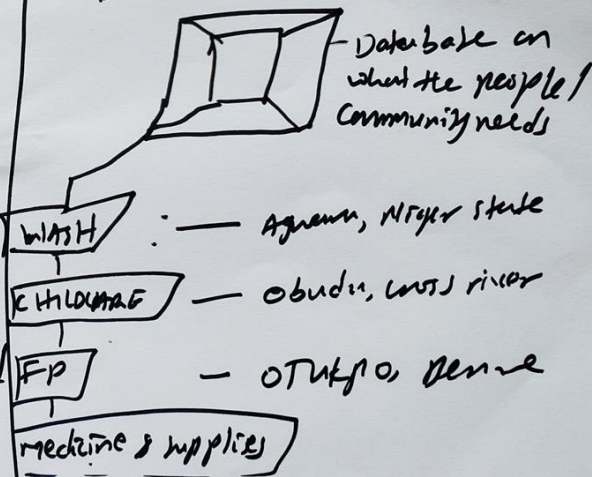 Database on
what the people/
Community needs
WASH : — Agwara, Niger state
CHILDCARE — Obudu, cross river
FP — OTUKPO, Benue
medicine & supplies